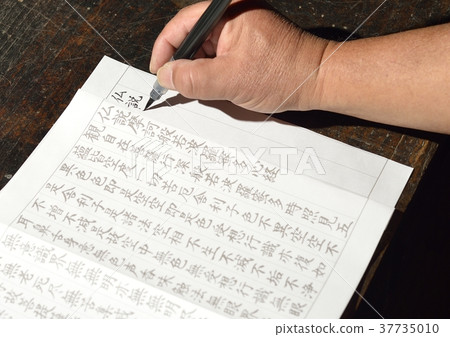 仏説
仏説摩訶般若波羅蜜多心経
観自在菩薩行深般若波羅蜜多時照見五
蘊皆空度一切苦厄舎利子色不異空空不
異色色即是空空即是色受想行識亦復如
是舎利子是諸法空相不生不滅不垢不浄
不増不減是故空中無色無受想行識無眼
耳鼻舌身意無色声香味触法無眼界
無意識界無無明亦無無明
無老死尽無苦集滅
PIXTA
37735010